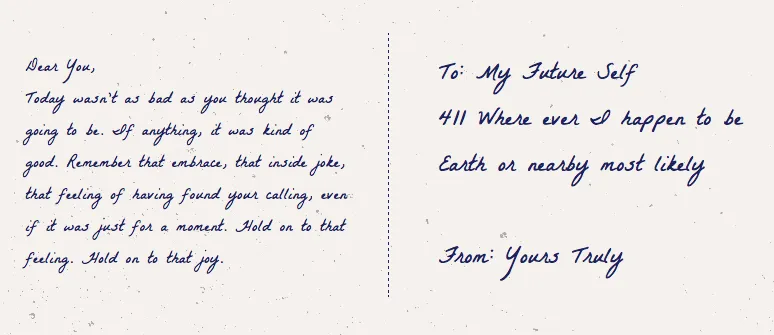 Dear You,
Today wasn't as bad as you thought it was
going to be. If anything, it was kind of
good. Remember that embrace, that inside joke,
that feeling of having found your calling, even
if it was just for a moment. Hold on to that
feeling. Hold on to that joy.
To: My Future Self
411 Where ever I happen to be
Earth or nearby most likely
From: Yours Truly